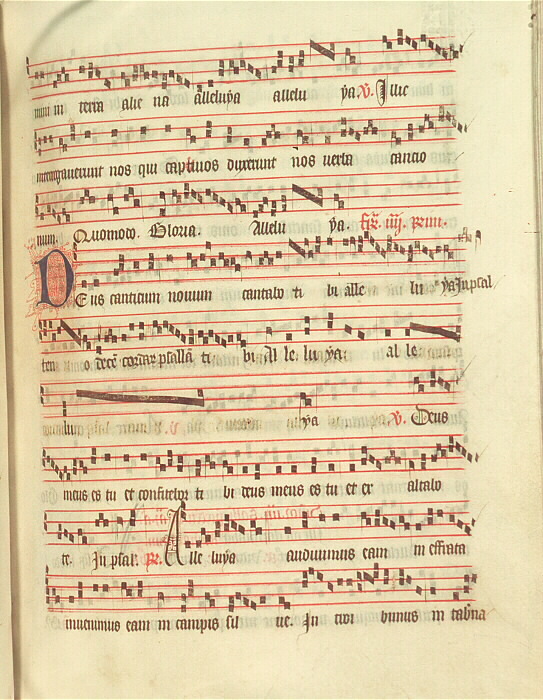 num in terra alie na alleluya allelu ya. V. Illic
interrogauerunt nos qui captiuos duxerunt nos verba cantio
num. Quomodo. Gloria. Allelu ya.
Deus canticum nouum cantabo ti bi alle lu ya In psal
ten o decem cordar psallam ti bi Al le lu ya: al le
ya V. Deus
meus es tu et confitebor ti bi deus meus es tu et ex altabo
te. In psal. Alle luya audiuimus eam in effrata
inuenimus eam in campis sil ue. In troi bimus in tab'na